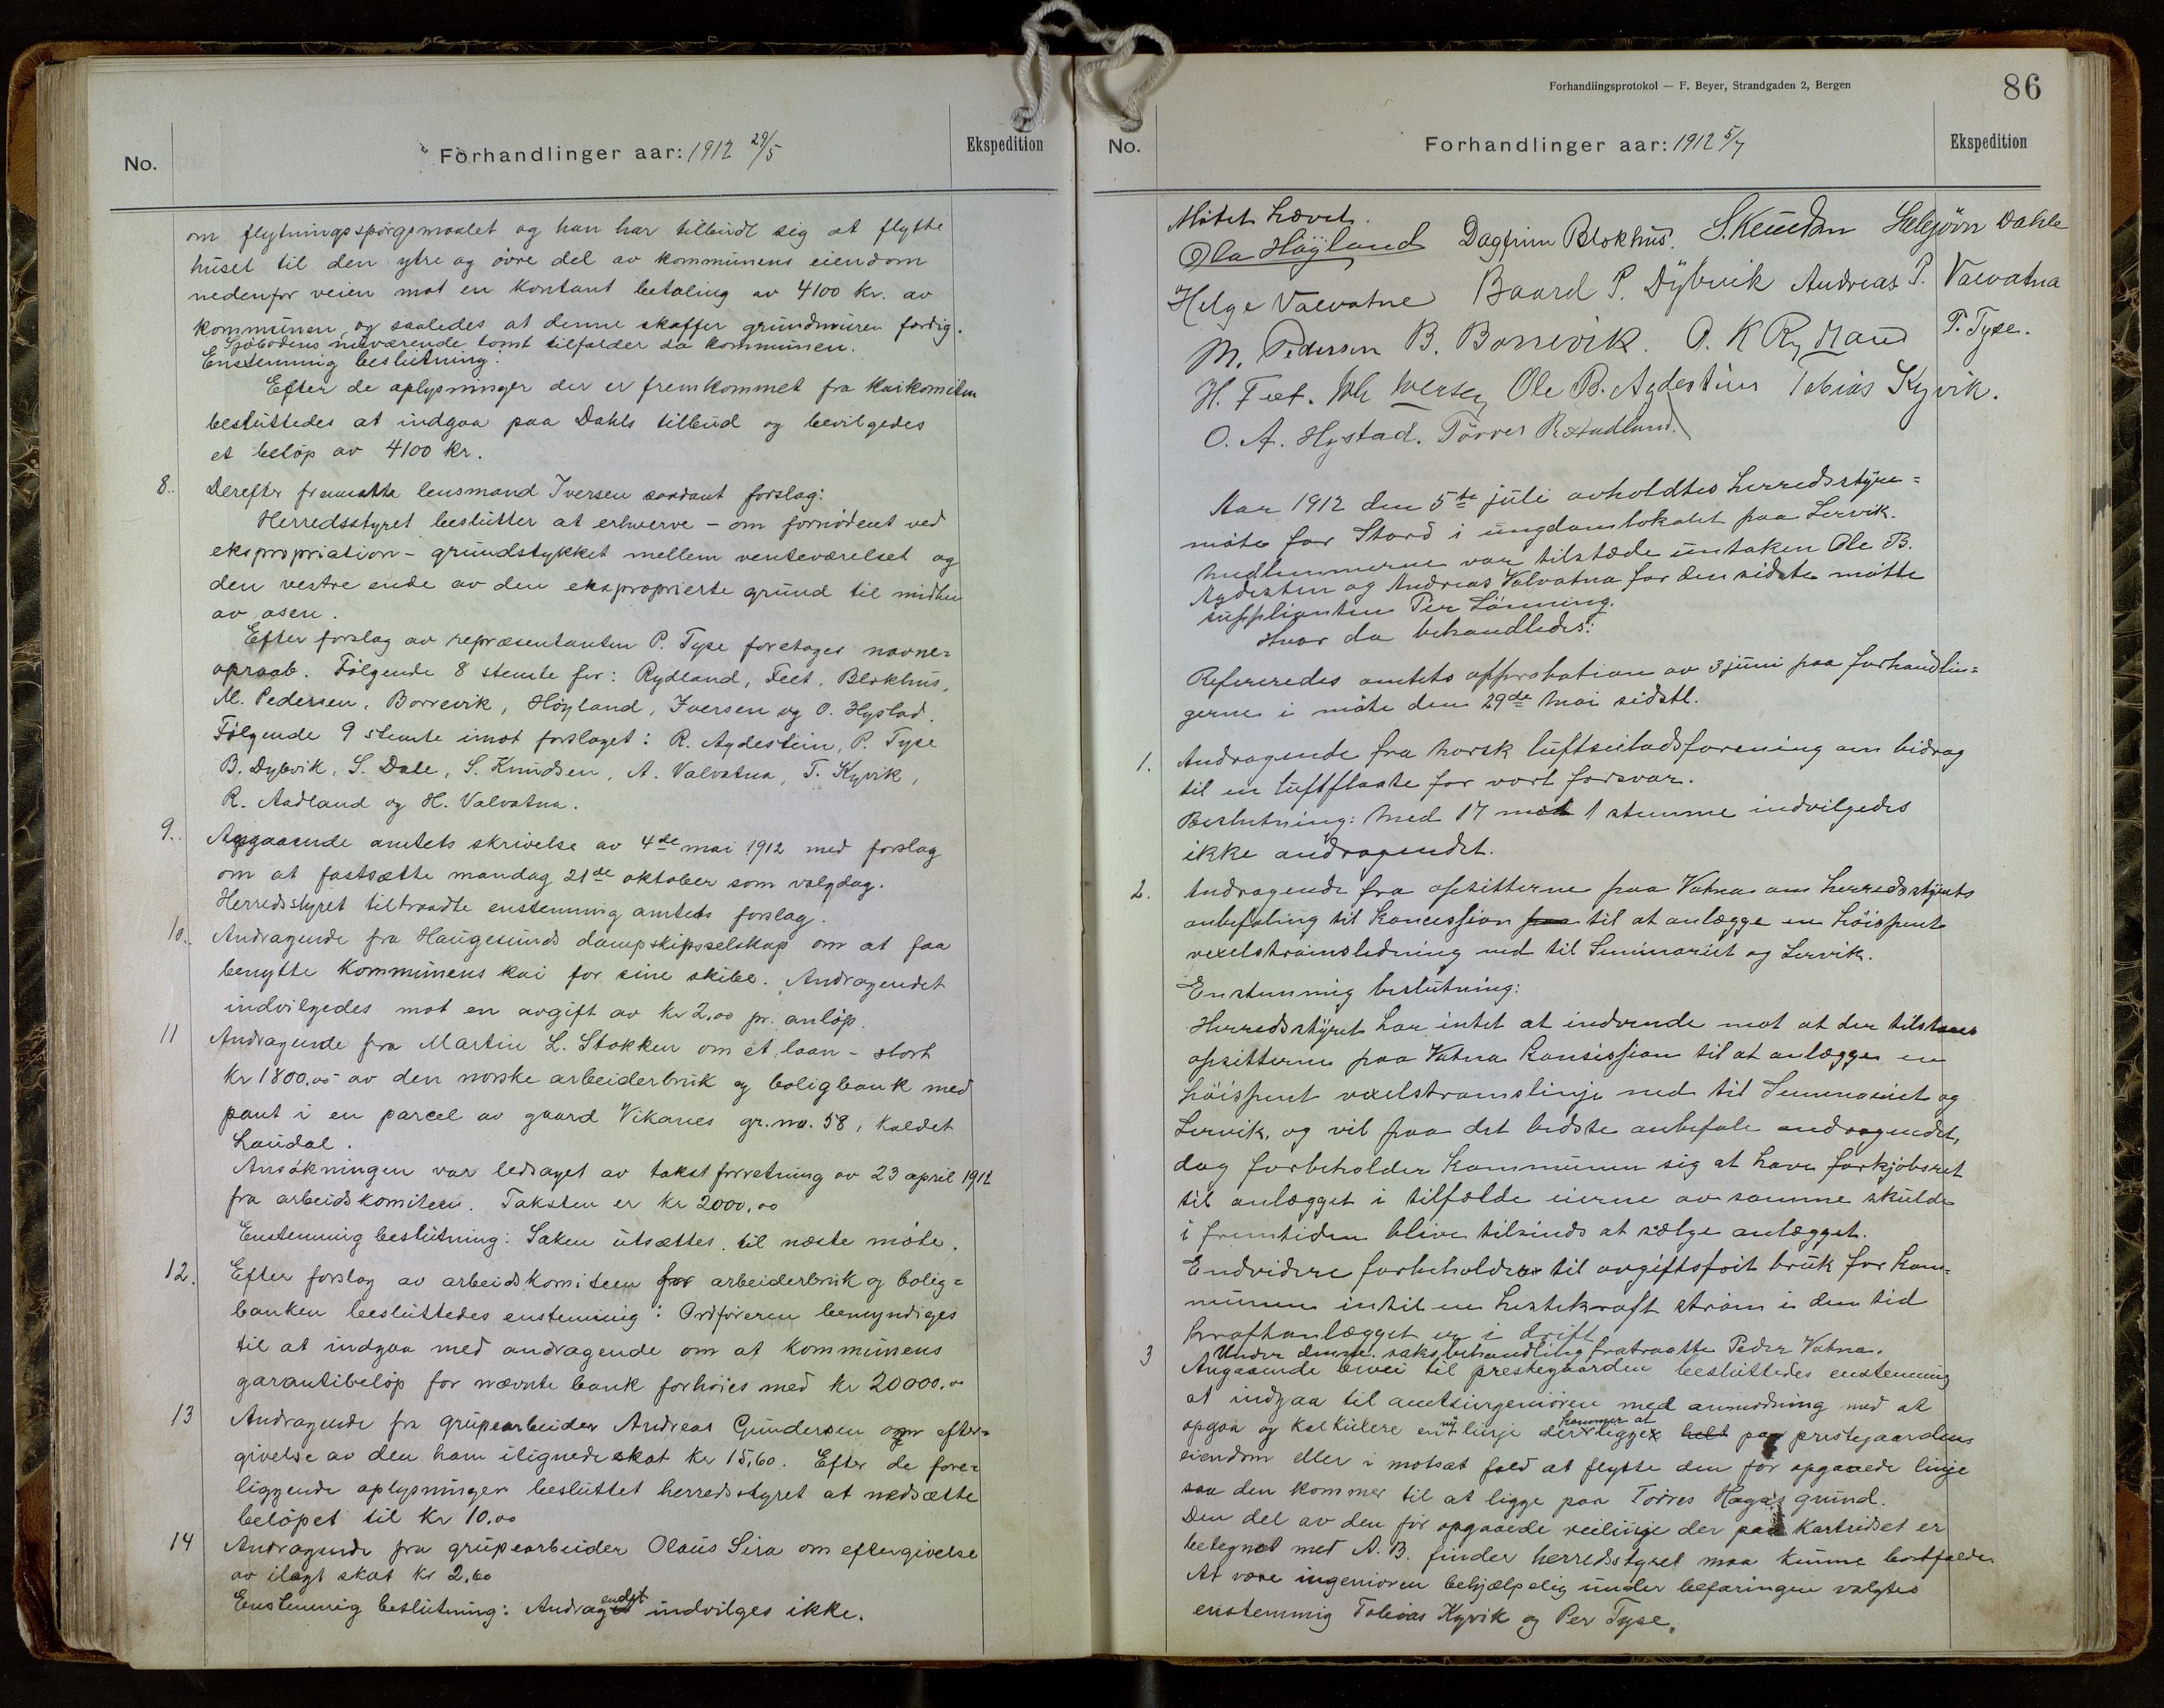 Forhandlinger aar: 1912 29/5
No.
Ekspedition
om flytningsspörgsmaalet og han har tilbudt sig at flytte
huset til den ytre og övre del av kommunens eiendom
nedenfor veien mot en kontant betaling av 4100 kr. av
kommunen, og saaledes at denne skaffer grundmuren færdig.
Sjöbodens nuværende tomt tilfalder da kommunen.
Enstemmig beslutning:
Efter de oplysninger der er fremkommet fra kaikomiteen
besluttedes at indgaa paa Dahls tilbud og bevilgedes
et belöp av 4100 kr.
8. Derefter fremsatte lensmand Iversen saadant forslag:
Herredsstyret beslutter at erhverve – om fornödent ved
ekspropriation – grundstykket mellem venteværelset og
den vestre ende av den eksproprierte grund til midten
av osen.
Efter forslag av repræsentanten P. Tyse foretoges navne=
opraab. Fölgende 8 stemte for: Rydland, Feet, Blokhus,
M. Pedersen, Borrevik, Höyland, Iversen og O. Hystad.
Fölgende 9 stemte imot forslaget: R. Agdestein, P. Tyse
B. Dybvik, S. Dale, S. Knudsen, A. Valvatna, T. Kyvik,
R. Aadland og H. Valvatna.
9. Angaaende amtets skrivelse av 4de mai 1912 med forslag
om at fastsætte mandag 21de oktober som valgdag.
Herredsstyret tiltraadte enstemmig amtets forslag.
10. Andragende fra Haugesunds dampskipsselskap om at faa
benytte kommunens kai for sine skibe. Andragendet
indvilgedes mot en avgift av kr 2.00 pr. anlöp.
11 Andragende fra Martin L. Stokken om et laan – stort
kr 1800.00 av den norske arbeiderbruk og boligbank med
pant i en parcel av gaard Vikanes gr. no. 58, kaldet
Laudal.
Ansökningen var ledsaget av takstforretning av 23 april 1912
fra arbeidskomiteen. Taksten er kr 2000.00
Enstemmig beslutning: Saken utsættes til næste möte.
12. Efter forslag av arbeidskomiteen for arbeiderbruk og bolig=
banken besluttedes enstemmig: Ordföreren bemyndiges
til at indgaa med andragende om at kommunens
garantibelöp for nævnte bank forhöies med kr 20000.00
13 Andragende fra grupearbeider Andreas Gundersen om efter=
givelse av den ham ilignede skat kr 15,60. Efter de fore=
liggende oplysninger besluttet herredsstyret at nedsætte
belöpet til kr 10.00
14 Andragende fra grupearbeider Olaus Sira om eftergivelse
av ilagt skat kr 2,60
Enstemmig beslutning: Andragendet indvilges ikke.
Forhandlingsprotokol — F. Beyer, Strandgaden 2, Bergen
86
No.
Forhandlinger aar: 1912 5/7
Ekspedition
Mötet hævet.
Ola Höyland Dagfinn Blokhus. S. Knudsen Salejörn Dahle
Helge Valvatne Baard P. Dÿbvik Andreas P. Valvatna
M. Pedersen B. Borrevik. O. K Rydland P. Tyse.
H. Feet. Iversen Ole B. Agdestein Tobias Kyvik.
O. A. Hystad. Törres R Aadland.
Aar 1912 den 5te juli avholdtes herredsstyre=
möte for Stord i ungdomslokalet paa Lervik.
Medlemmerne var tilstæde untaken Ole B.
Agdestein og Andreas Valvatna for den sidste mötte
supplianten Per Lönning.
Hvor da behandledes:
Refereredes amtets approbation av 3 juni paa forhandlin=
gerne i möte den 29de mai sidstl.
1. Andragende fra norsk luftseiladsforening om bidrag
til en luftflaate for vort forsvar.
Beslutning: Med 17 mot 1 stemme indvilgedes
ikke andragendet.
2. Andragende fra opsitterne paa Vatna om herredsstyrets
anbefaling til koncession paa til at anlægge en höispent
vexelströmsledning ned til Seminariet og Lervik.
Enstemmig beslutning:
Herredsstyret har intet at indvende mot at der tilstaaes
opsitterne paa Vatna konsission til at anlægge en
höispent vexelstrømslinje ned til Seminariet og
Lervik, og vil paa det bedste anbefale andragendet,
dog forbeholder kommunen sig at have forkjöbsret
til anlægget i tilfælde eierne av samme skulde
i fremtiden blive tilsinds at sælge anlægget.
Endvidere forbeholdes til avgiftsfrit bruk for kom=
munen intil en hestekraft ström i den tid
kraftanlægget er i drift.
Under denne saks behandling fratraatte Peder Vatna.
3 Angaaende bivei til prestegaarden besluttedes enstemmig
at indgaa til amtsingeniören med anmodning med at
opgaa og kalkulere en ny linje der kommer at ligge helt paa prestegaardens
eiendom eller i motsat fald at flytte den för opgaaede linje
saa den kommer til at ligge paa Torres Hagas grund.
Den del av den för opgaaede veilinje der paa kartridset er
betegnet med A. B. finder herredsstyret maa kunne bortfalde.
At være ingeniören behjælpelig under befaringen valgtes
enstemmig Tobias Kyvik og Per Tyse.